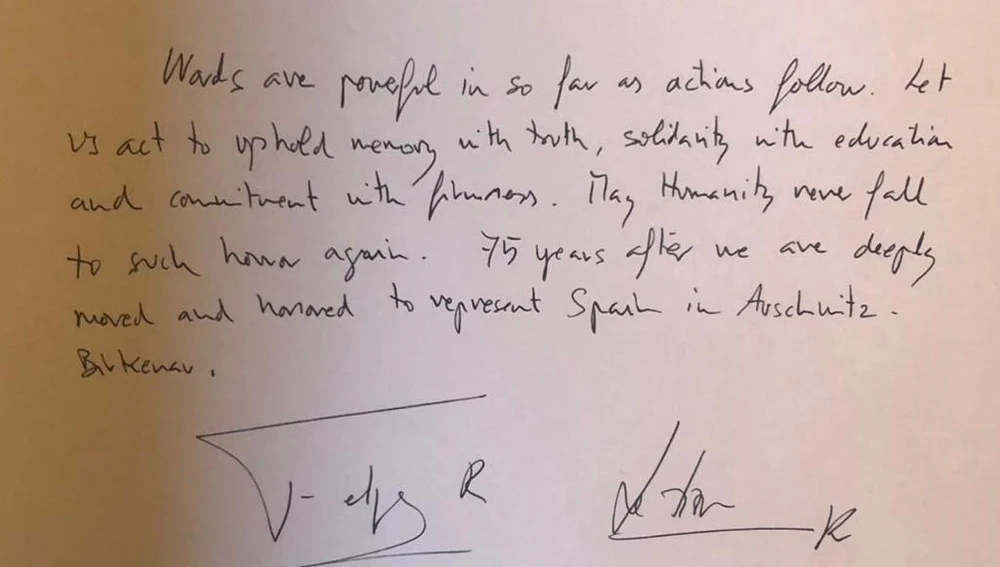 Words are powerful in so far as actions follow. Let
us act to uphold memory with truth, solidarity with education
and commitment with firmness. May Humanity never fall
to such horror again. 75 years after we are deeply
moved and honored to represent Spain in Auschwitz-
Birkenau.
R
R